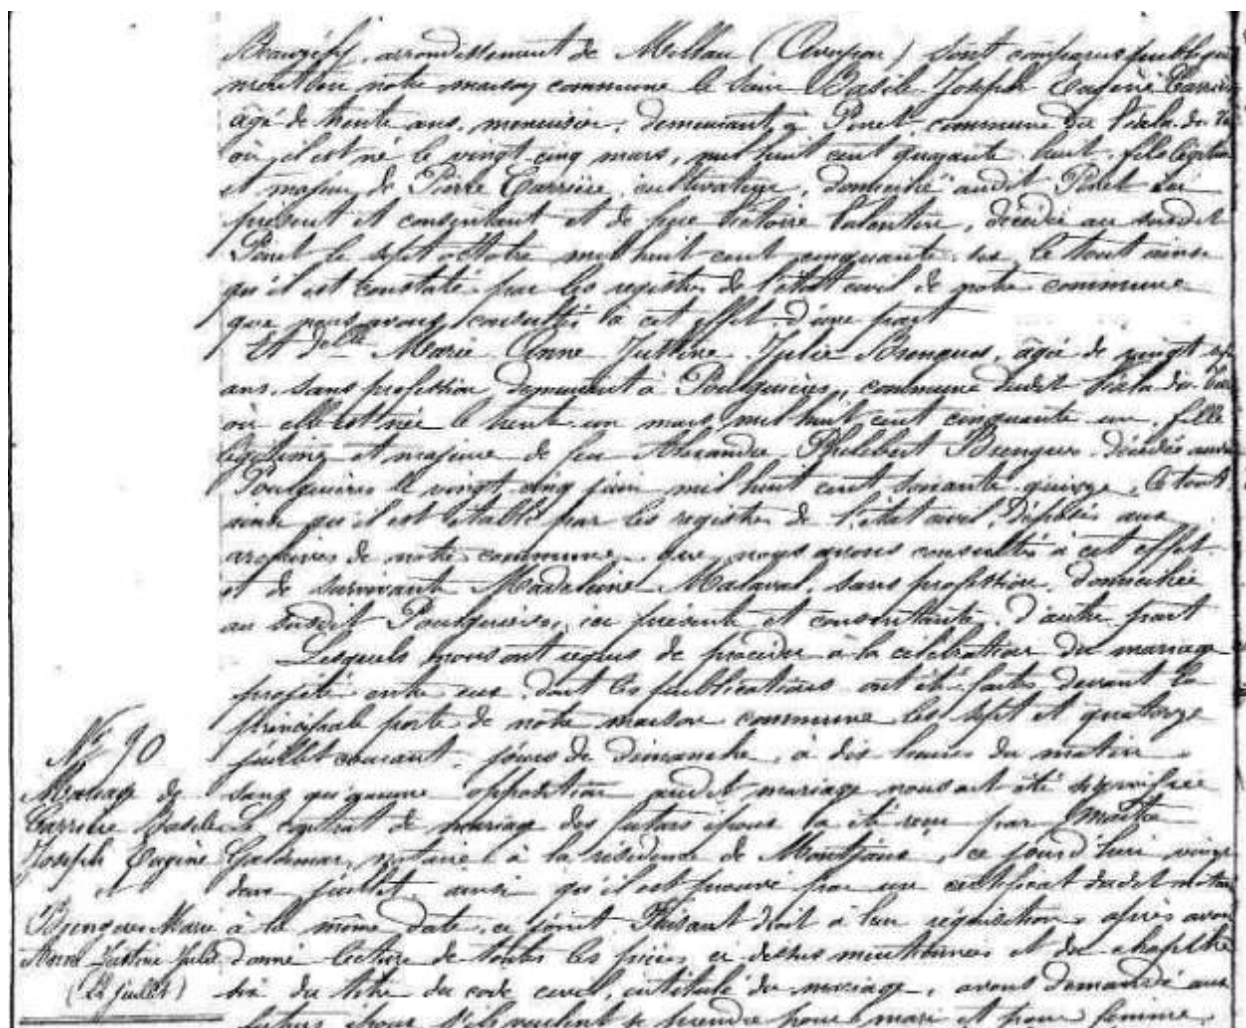 Beauzély, arrondissement de Millau (Aveyron) sont comparus publique
ment en notre maison commune le sieur Basile Joseph Eugène Carrière
âgé de trente ans, menuisier, demeurant à Pinet commune du Viala du
où il est né le vingt cinq mars, mil huit cent quarante huit, fils légitime
et majeur de Pierre Carrière, cultivateur, domicilié audit Pinet ici
présent et consentant et de feue Victoire Valentin, décédée au susdit
Pinet le sept octobre mil huit cent cinquante six, le tout ainsi
qu'il est constaté par les registres de l'état civil de notre commune
que nous avons consultés à cet effet d'une part
Et delle Marie Anne Justine Julie Bringuès, âgée de vingt sept
ans, sans profession demeurant à Poulguières, commune dudit Viala du Tarn
où elle est née le trente un mars mil huit cent cinquante un, fille
légitime et majeure de feu Alexandre Philibert Bringues décédé audit
Poulguières le vingt cinq juin mil huit cent soixante quinze, le tout
ainsi qu'il est établi par les registres de l'état civil, déposés aux
archives de notre commune que nous avons consultés à cet effet
et de survivante Madeleine Malaval, sans profession, domiciliée
au susdit Poulguières, ici présente et consentante, d'autre part
Lesquels nous ont requis de procéder à la célébration du mariage
projeté entre eux dont les publications ont été faites devant la
principale porte de notre maison commune les sept et quatorze
juillet courant, jours de dimanche, à dix heures du matin
sans qu'aucune opposition audit mariage nous ait été signifiée
Le contrat de mariage des futurs époux a été reçu par Maître
Galdemar, notaire à la résidence de Montjaux, ce jourd'hui vingt
deux juillet ainsi qu'il est prouvé par un certificat dudit notaire
à la même date, ci joint Faisant droit à leur réquisition, après avoir
donné lecture de toutes les pièces ci dessus mentionnées et du chapitre
six du titre du code civil, intitulé du mariage, avons demandé aux
futurs époux s'ils veulent se prendre pour mari et pour femme
No 90
Mariage de
Carrière Basile
Joseph Eugène
et
Bringues Marie
Anne Justine Julie
(22 juillet)